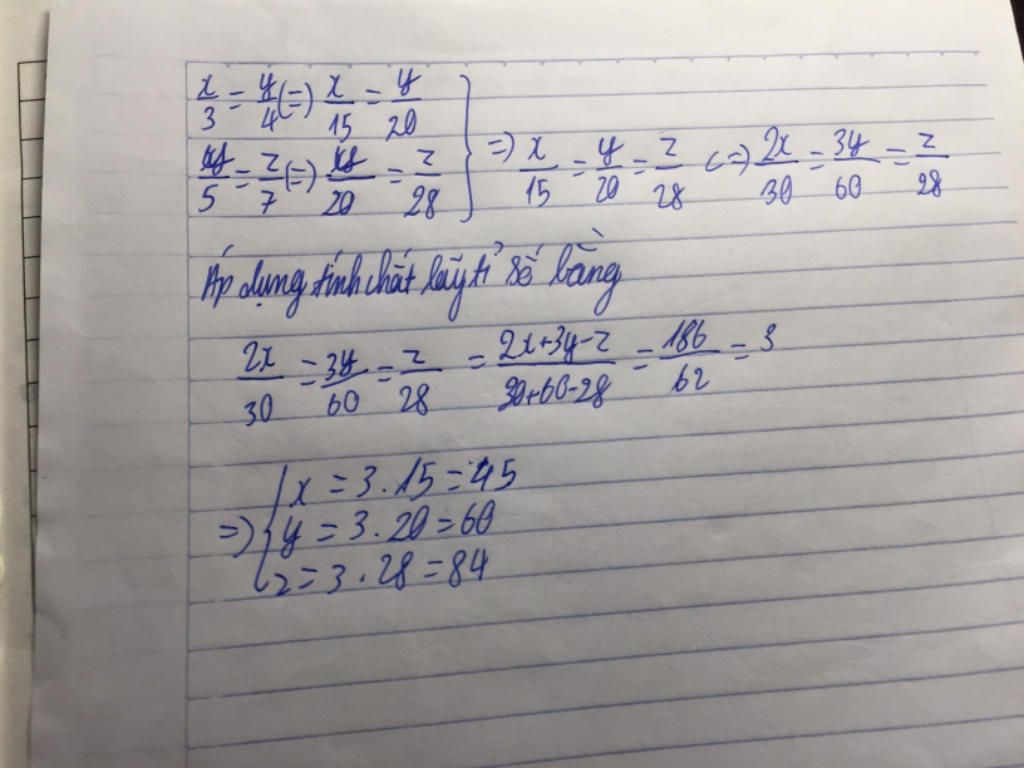 x/3 = y/4 (=) x/15 = y/20
y/5 = z/7 (=) y/20 = z/28 } =) x/15 = y/20 = z/28 (=) 2x/30 = 3y/60 = z/28
Áp dụng tính chất dãy tỉ số bằng
2x/30 = 3y/60 = z/28 = 2x+3y-z/30+60-28 = 186/62 = 3
x = 3.15 = 45
=) { y = 3.20 = 60
z = 3.28 = 84